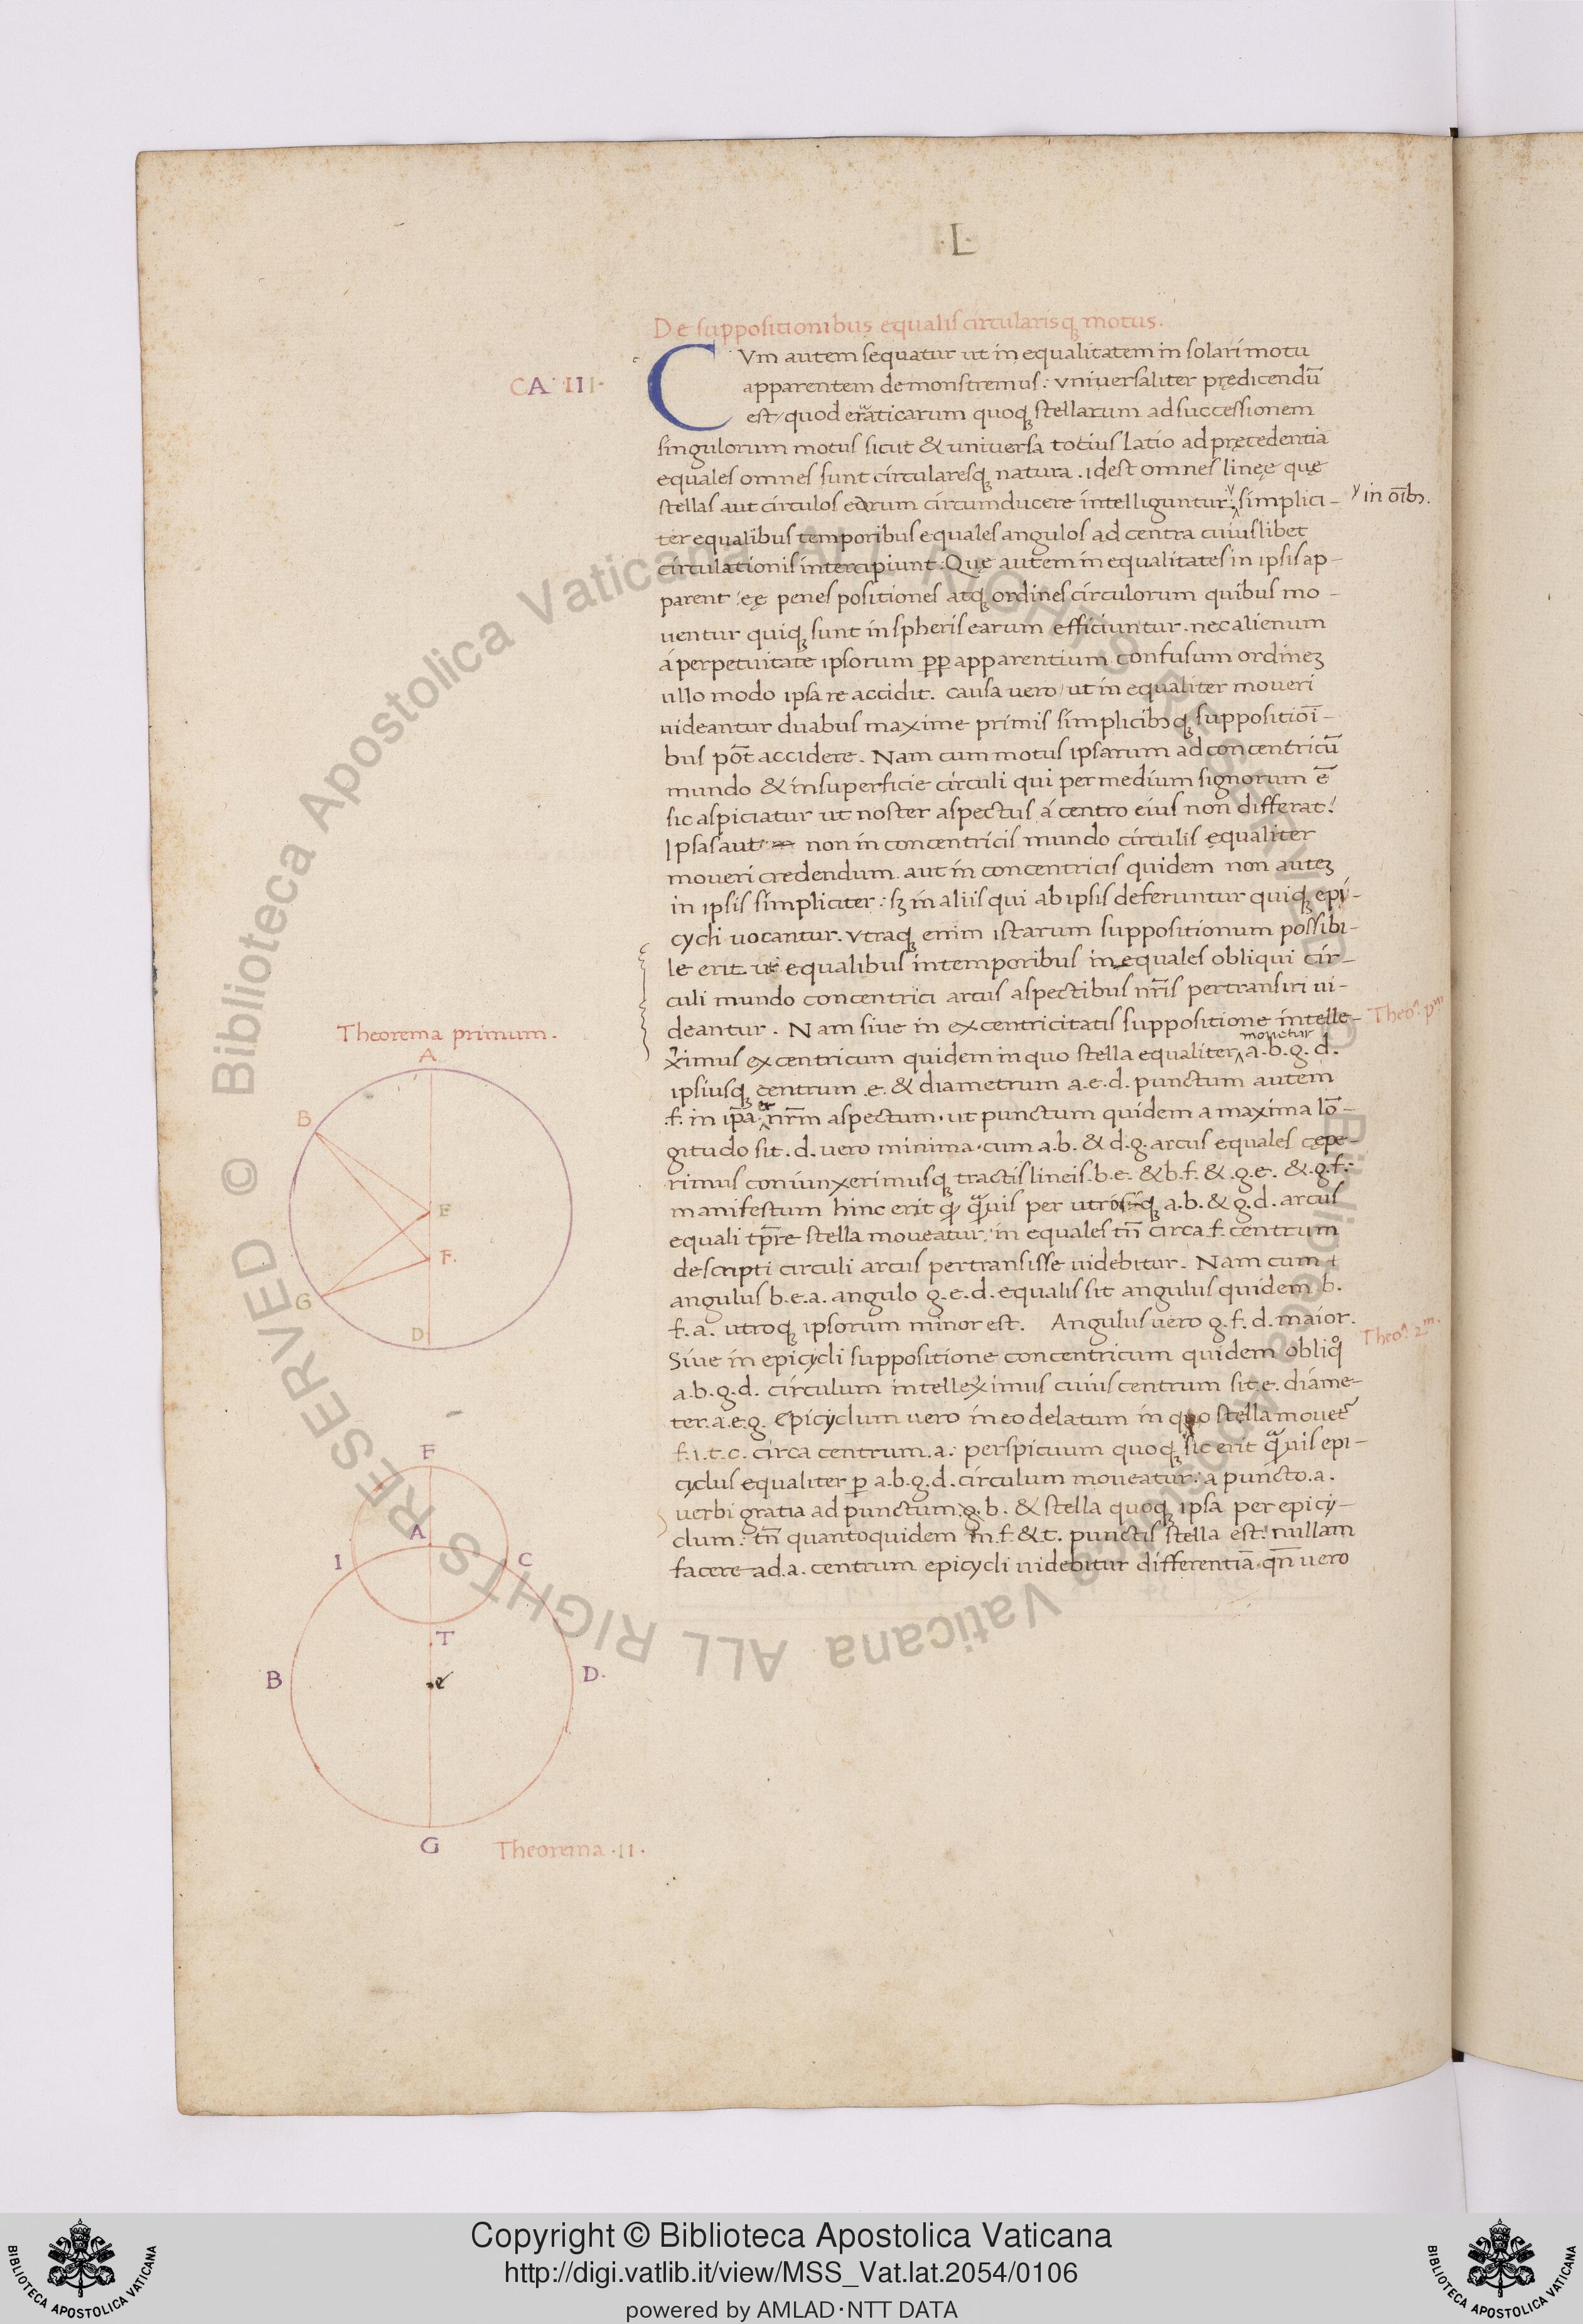 ·L·
De suppositionibus equalis circularisq motus.
CA· III·
CVm autem sequatur ut inequalitatem in solari motu
apparentem demonstremus: universaliter predicendū
est/ quod erraticarum quoq stellarum ad successionem
singulorum motus sicut & universa totius latio ad pręcedentia
equales omnes sunt circularesq natura. idest omnes linęę quę
stellas aut circulos eorum circumducere intelliguntur: simplici-
in oībꝫ.
ter equalibus temporibus equales angulos ad centra cuiuslibet
circulationis intercipiunt: Quę autem inequalitates in ipsis ap-
parent: eę penes positiones atq ordines circulorum quibus mo-
uentur quiq sunt in spheris earum efficiuntur. nec alienum
á perpetuitate ipsorum ꝓꝑ apparentium confusum ordineꝫ
ullo modo ipsa re accidit. causa uero/ ut inequaliter moueri
uideantur duabus maxime primis simplicibꝫq suppositiōi-
bus pōt accidere. Nam cum motus ipsarum ad concentricū
mundo & in superficie circuli qui per medium signorum ē
sic aspiciatur ut noster aspectus á centro eius non differat:
Ipsas aut non in concentricis mundo circulis equaliter
moueri credendum. aut in concentricis quidem non auteꝫ
in ipsis simpliciter: sꝫ in aliis qui ab ipsis deferuntur quiq epi-
cycli uocantur. Vtraq enim istarum suppositionum possibi-
le erit ut equalibus in temporibus inequales obliqui cir-
culi mundo concentrici arcus aspectibus nr̄is pertransiri ui-
deantur. Nam siue in excentricitatis suppositione intelle-
Theoᵃ. pᵐ
ximus excentricum quidem in quo stella equaliter a.b.g.d.
mouetur
ipsiusq centrum .e. & diametrum a.e.d. punctum autem
.f. in ip̄a nr̄m aspectum. ut punctum quidem a maxima lō-
gitudo sit. d. uero minima. cum a.b. & d.g. arcus equales cępe-
rimus coniunxerimusq tractis lineis .b.e. & b.f. & .g.e. & .g.f.:
manifestum hinc erit ꝙ q̄uis per utrosq a.b. & g.d. arcus
equali tp̄re stella moueatur: inequales tn̄ circa f. centrum
descripti circuli arcus pertransisse uidebitur. Nam cum
angulus b.e.a. angulo g.e.d. equalis sit angulus quidem b.
f.a. utroq ipsorum minor est. Angulus uero g.f.d. maior.
Theoᵃ. 2ᵐ.
Siue in epicycli suppositione concentricum quidem obliqͦ
a.b.g.d. circulum intelleximus cuius centrum sit e. diame-
ter. a.e.g. epicyclum uero in eo delatum in quo stella mouet᷑
f.i.t.c. circa centrum .a.: perspicuum quoq sic erit q̄uis epi-
cyclus equaliter ꝑ a.b.g.d. circulum moueatur: a puncto .a.
uerbi gratia ad punctum .g.b. & stella quoq ipsa per epicy-
clum: tn̄ quanto quidem in f. & t. punctis stella est: nullam
facere ad .a. centrum epicycli uidebitur differentiā. qn̄ uero
Theorema primum.
A
B
E
F.
G
D
F
A
I
C
T
B
e
D.
G
Theorema ·II·
© Biblioteca Apostolica Vaticana ALL RIGHTS RESERVED © Biblioteca Apostolica Vaticana ALL RIGHTS RESERVED
BIBLIOTECA APOSTOLICA VATICANA
Copyright © Biblioteca Apostolica Vaticana
http://digi.vatlib.it/view/MSS_Vat.lat.2054/0106
powered by AMLAD·NTT DATA
BIBLIOTECA APOSTOLICA VATICANA